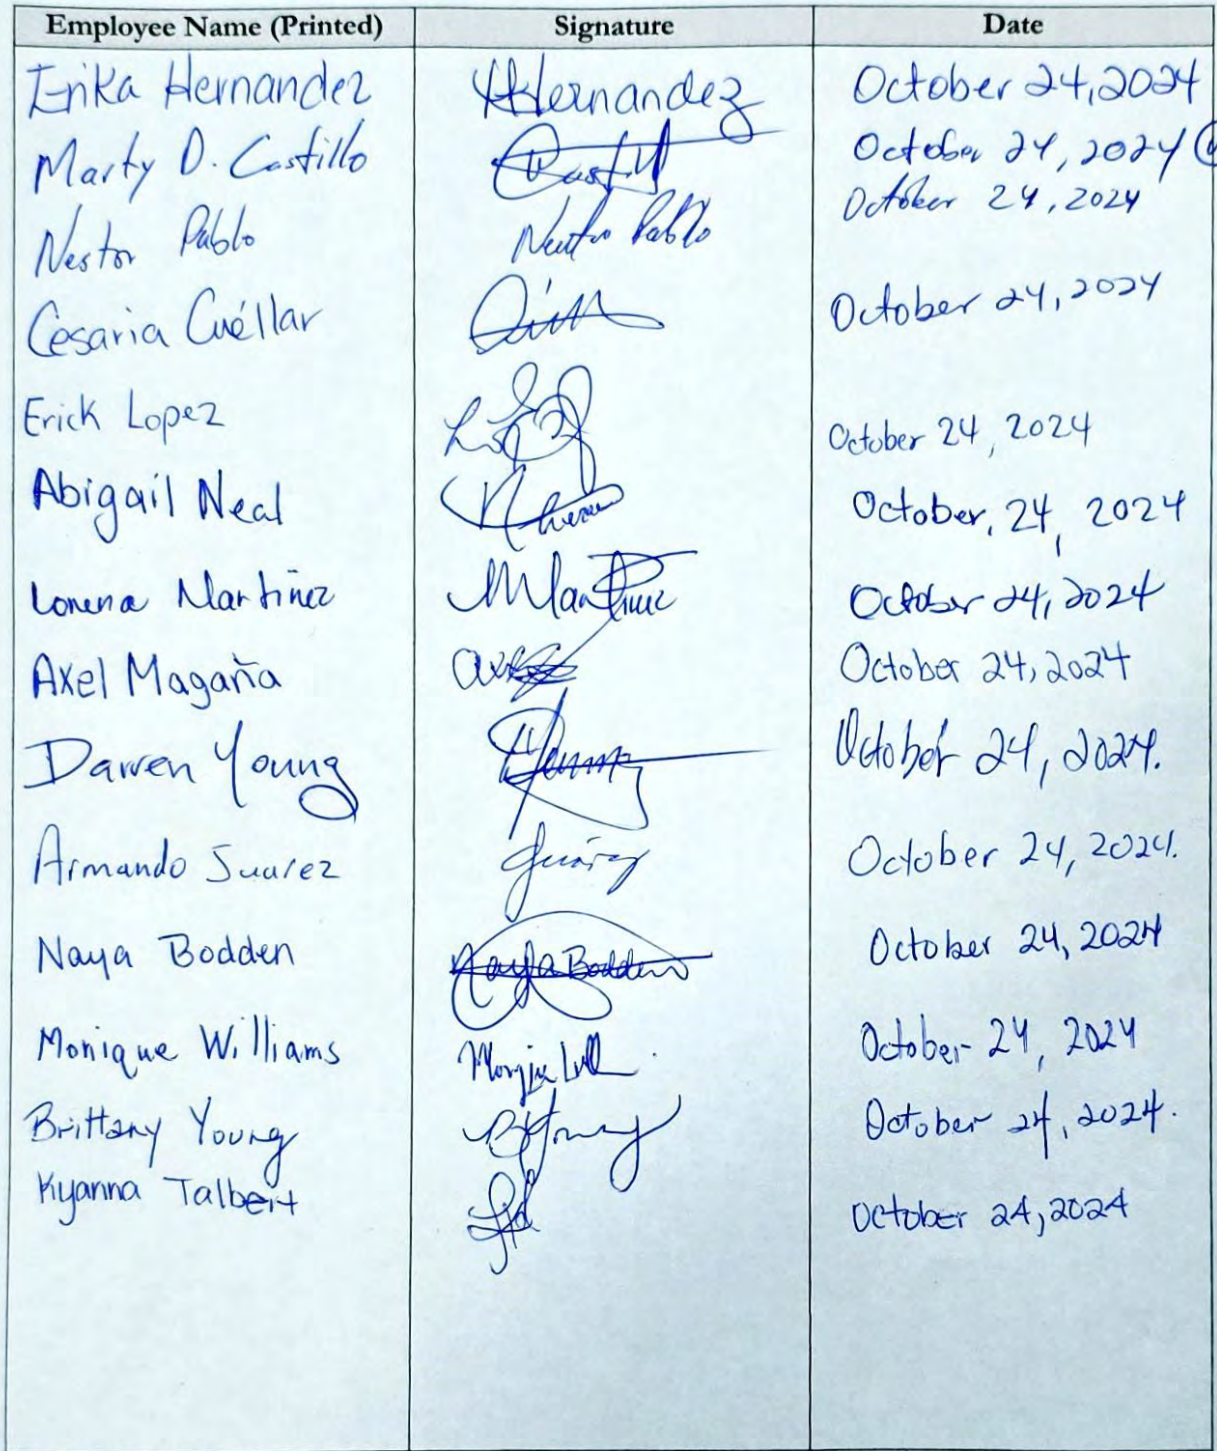 Employee Name (Printed) Signature Date
Erika Hernandez Hernandez October 24,2024
Marty D. Castillo October 24, 2024
Nestor Pablo Nestor Pablo October 24, 2024
Cesaria Cuéllar October 24, 2024
Erick Lopez October 24, 2024
Abigail Neal October, 24, 2024
Lorena Martinez October 24, 2024
Axel Magaña October 24, 2024
Darren Young October 24, 2024.
Armando Suarez Suárez October 24, 2024.
Naya Bodden Naya Bodden October 24, 2024
Monique Williams October 24, 2024
Brittany Young BYoung October 24, 2024.
Kyanna Talbert October 24, 2024